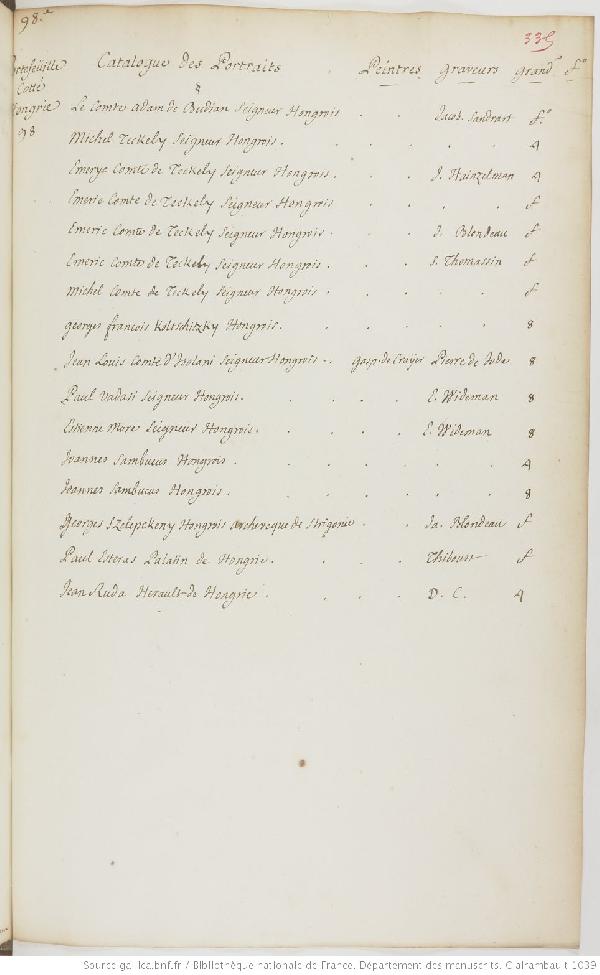 98.e
335
Catalogue des Portraits Peintres graveurs grand.r f.o
Cotte
98
Le Comte Adam de Budian Seigneur Hongrois . . Jacob. Sandrart f.o
Michel Teckely Seigneur Hongrois . . . . . 4
Emeryc Comte de Teckely Seigneur Hongrois . . . J. Hainzelman 4
Emeric Comte de Teckely Seigneur Hongrois . . . f
Emeric Comte de Teckely Seigneur Hongrois . . . J. Blondeau f
Emeric Comte de Teckely Seigneur Hongrois . . . S. Thomassin f
Michel Comte de Teckely Seigneur Hongrois . . . . f
georges françois Koltschitzky Hongrois . . . . . 8
Jean Louis Comte d'Isolani Seigneur Hongrois . . Gasp. de Crayer Pierre de Jode 8
Paul Vadasi Seigneur Hongrois . . . . E. Wideman 8
Estienne More Seigneur Hongrois . . . . E. Wideman 8
Joannes Sambucus Hongrois . . . . . . 4
Joannes Sambucus Hongrois . . . . . . 8
Georges Szelepckeny Hongrois Archevêque de Strigonie . . Ja. Blondeau f
Paul Esteras Palatin de Hongrie . . . . Thiboust f
Jean Ruda Herault de Hongrie . . . . D. C. 4
Source gallica.bnf.fr / Bibliothèque nationale de France. Département des manuscrits. Clairambault 1039